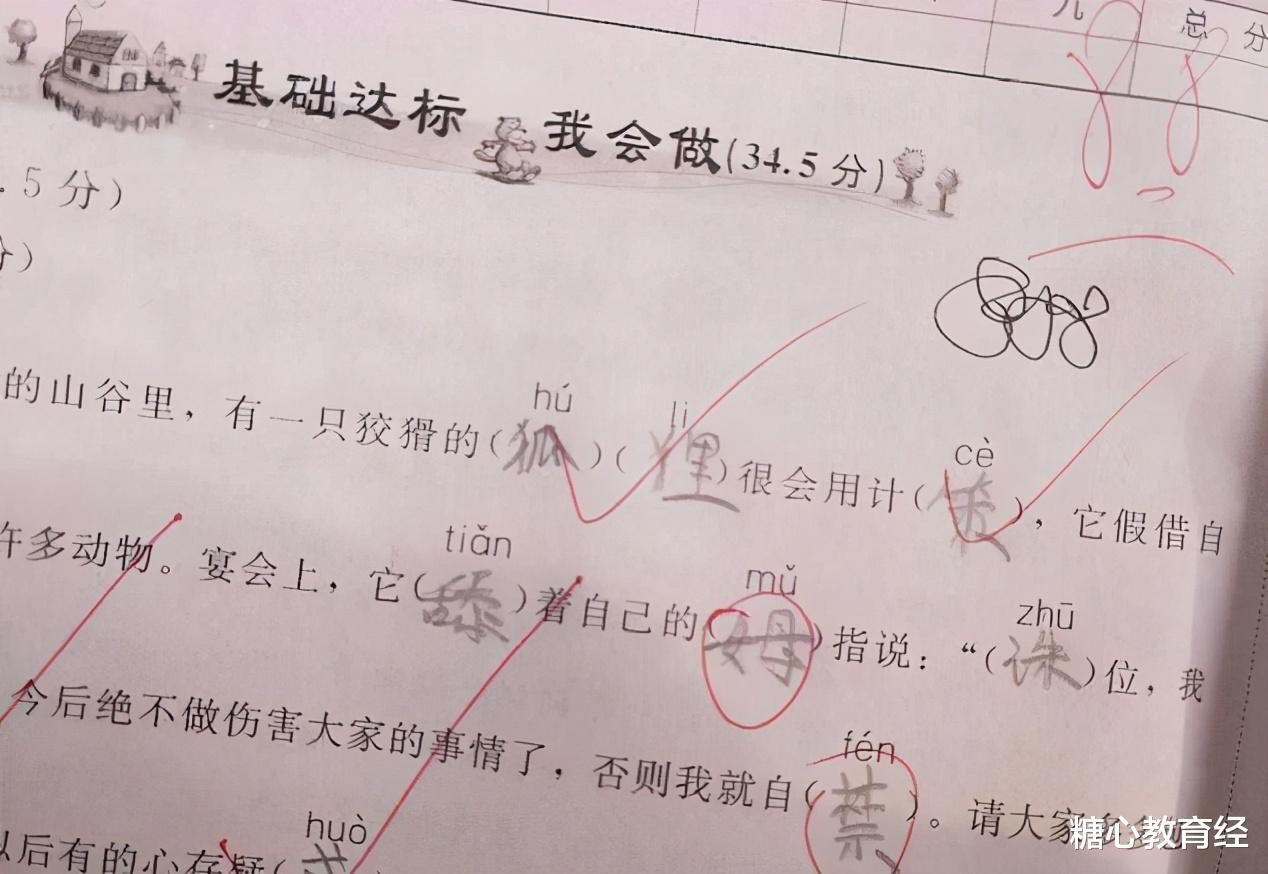 总 分
88
基础达标 我会做(34.5分)
.5分)
分)
hú li cè
的山谷里，有一只狡猾的(狐)(狸)很会用计(策)，它假借自
tiǎn mǔ zhū
许多动物。宴会上，它(舔)着自己的(姆)指说：“(诛)位，我
fén
今后绝不做伤害大家的事情了，否则我就自(禁)。请大家
huò
以后有的心存疑(
糖心教育经